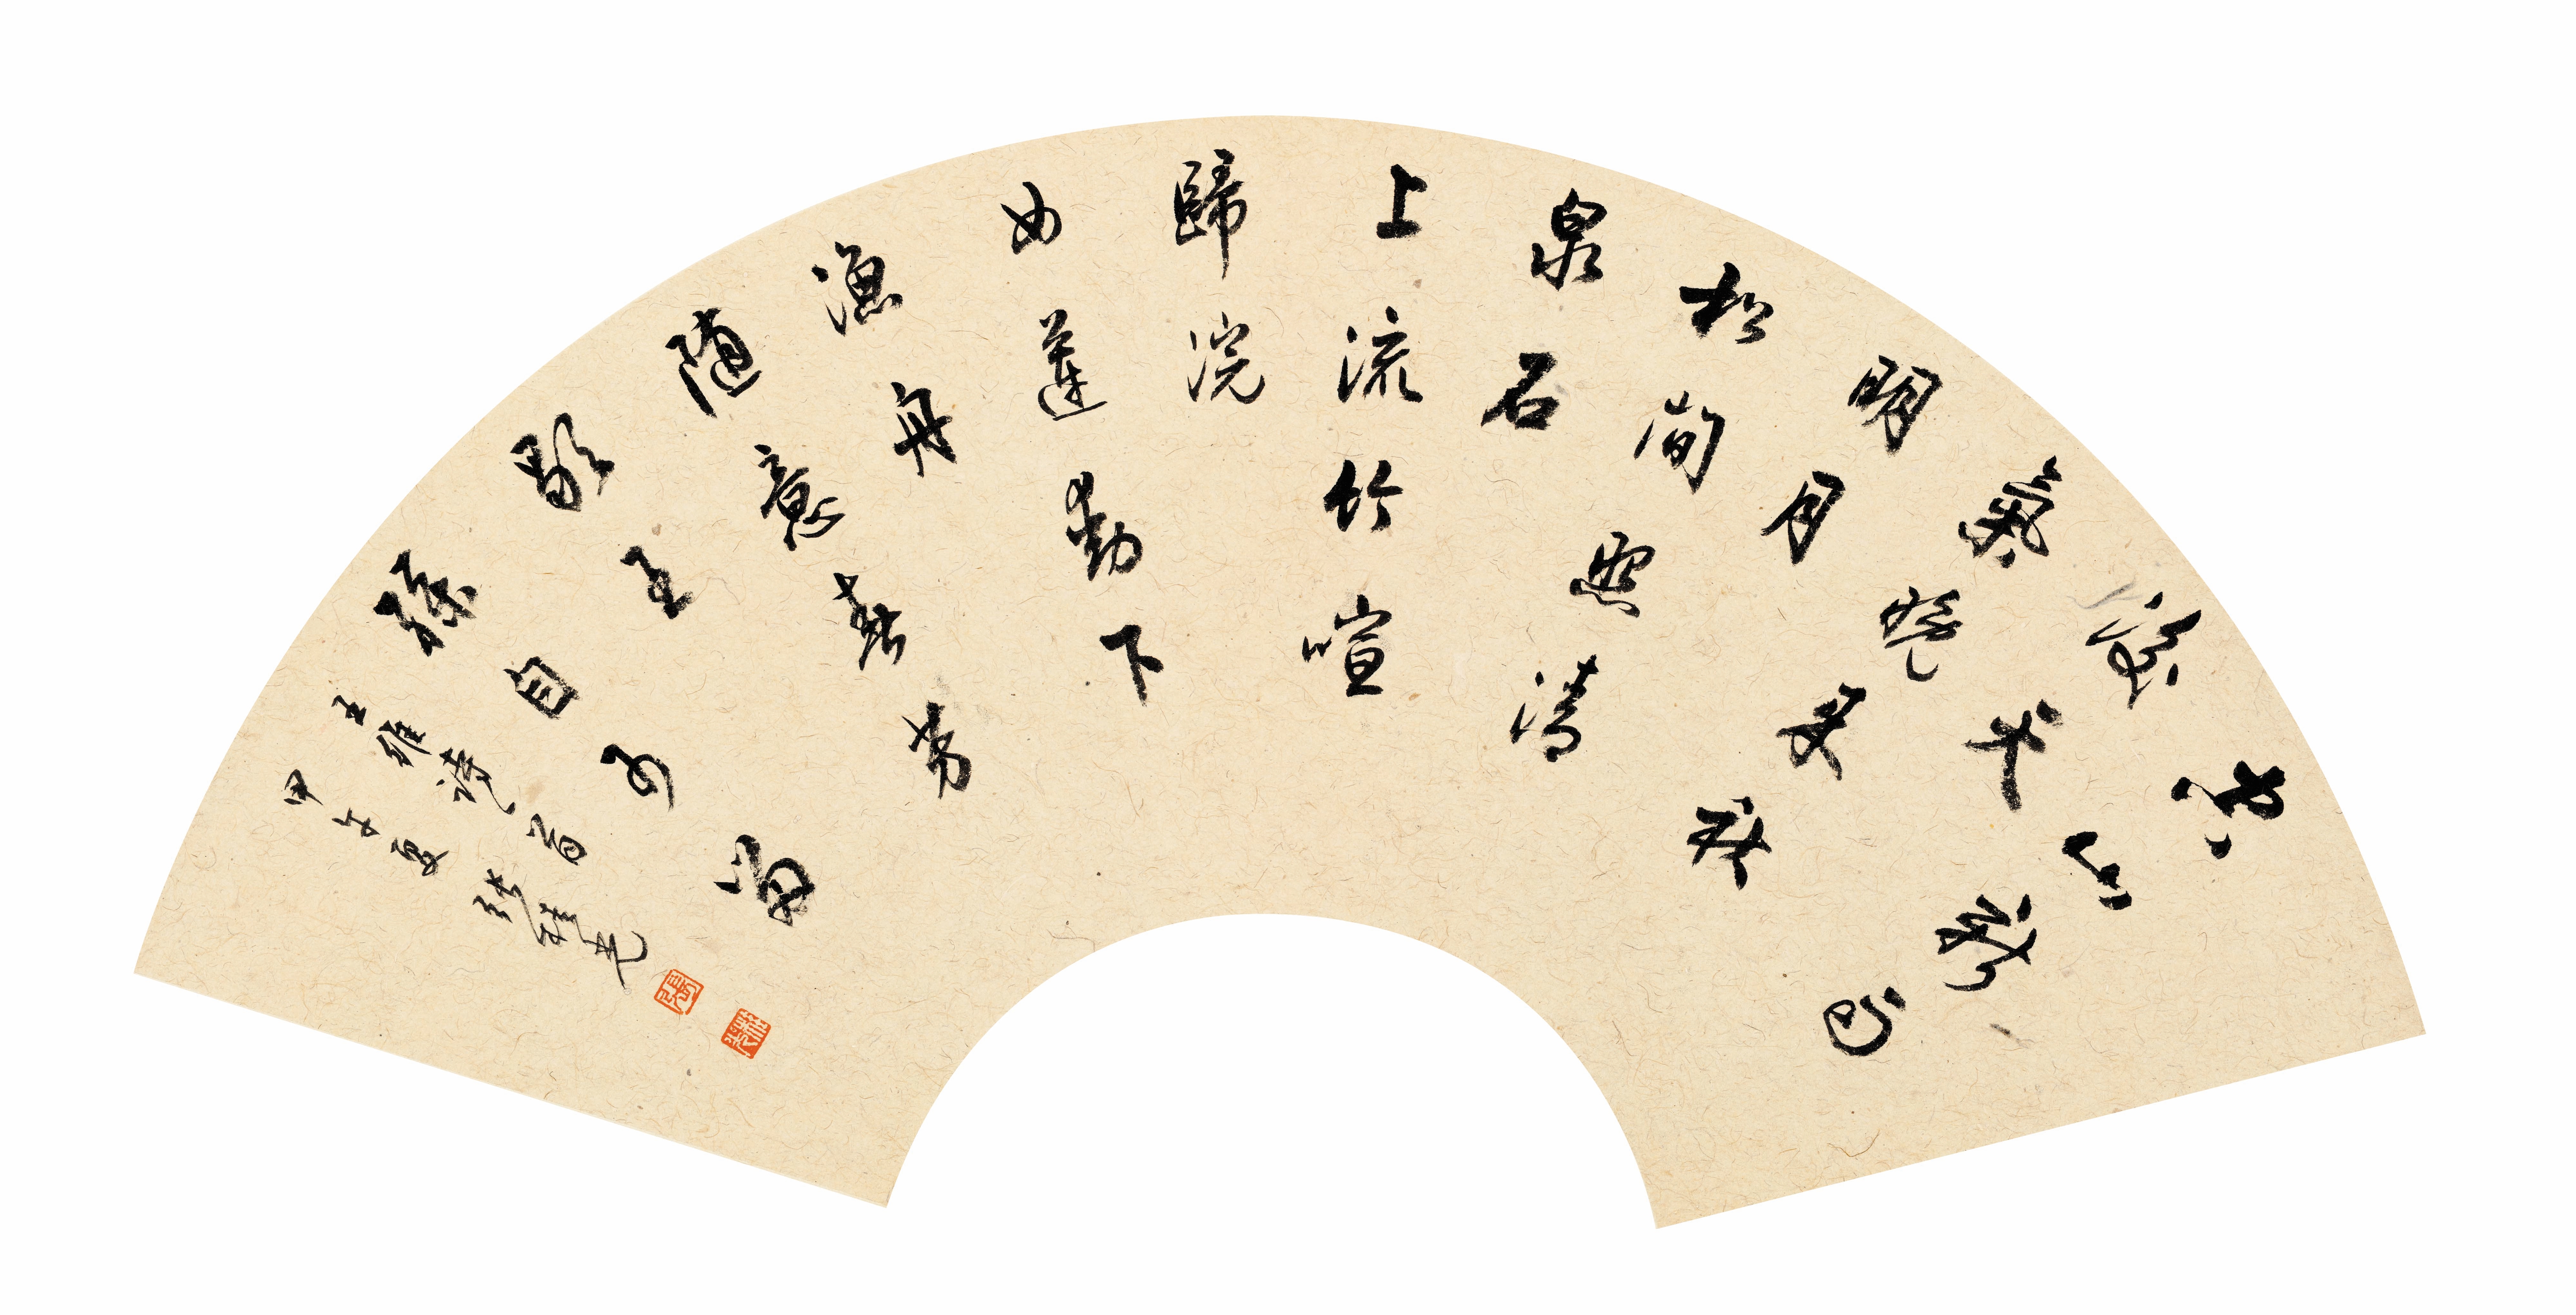 空山新雨
後天
氣晚來秋
明月
松間照清
泉石
上流竹喧
歸浣
女蓮動下
漁舟
隨意春芳
歇王
孫自可留
王維詩一首
甲午夏張